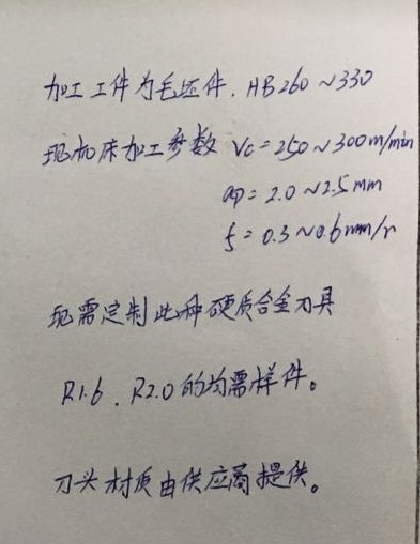 加工工件为毛坯件. HB260~330
现机床加工参数 Vc=250~300m/min
ap=2.0~2.5mm
f=0.3~0.6mm/r
现需定制此种硬质合金刀具
R1.6. R2.0的均需样件。
刀头材质由供应商提供。